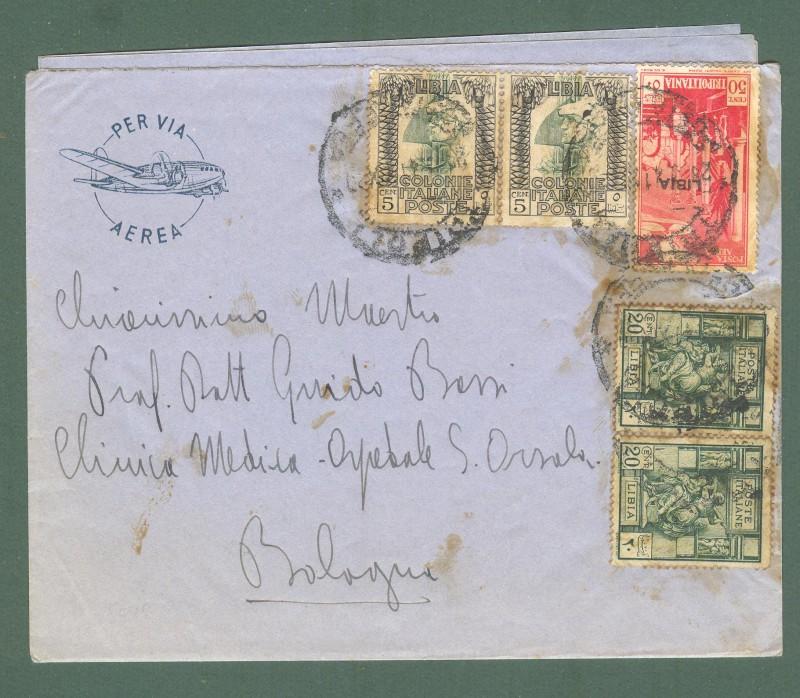 PER VIA
AEREA
LIBIA
CEN 5 COLONIE ITALIANE POSTE
LIBIA
CEN 5 COLONIE ITALIANE POSTE
50 CENT TRIPOLITANIA
LIBIA
POSTA AEREA
20 CENT POSTE ITALIANE
LIBIA
20 CENT POSTE ITALIANE
LIBIA
٢٠
Chiarissimo Maestro
Prof. Dott Guido Bassi
Clinica Medica - Ospedale S. Orsola
Bologna